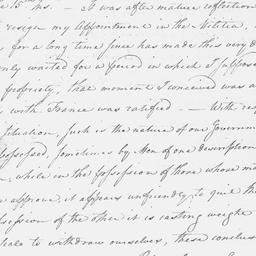 15 hs. — It was after mature reflection
resign my Appointment in the Militia,
for a long time since has made this very d
only waited for a period in which I suppose
propriety, that moment I conceived was a
with France was ratified. — With res
Situation, such is the nature of our Governm
possessed, sometimes by Men of one description
while in the possession of those whose m
approve, it appears unfriendly to quit the
possession of the other it is casting weight
Scale to withdraw ourselves, these conclus